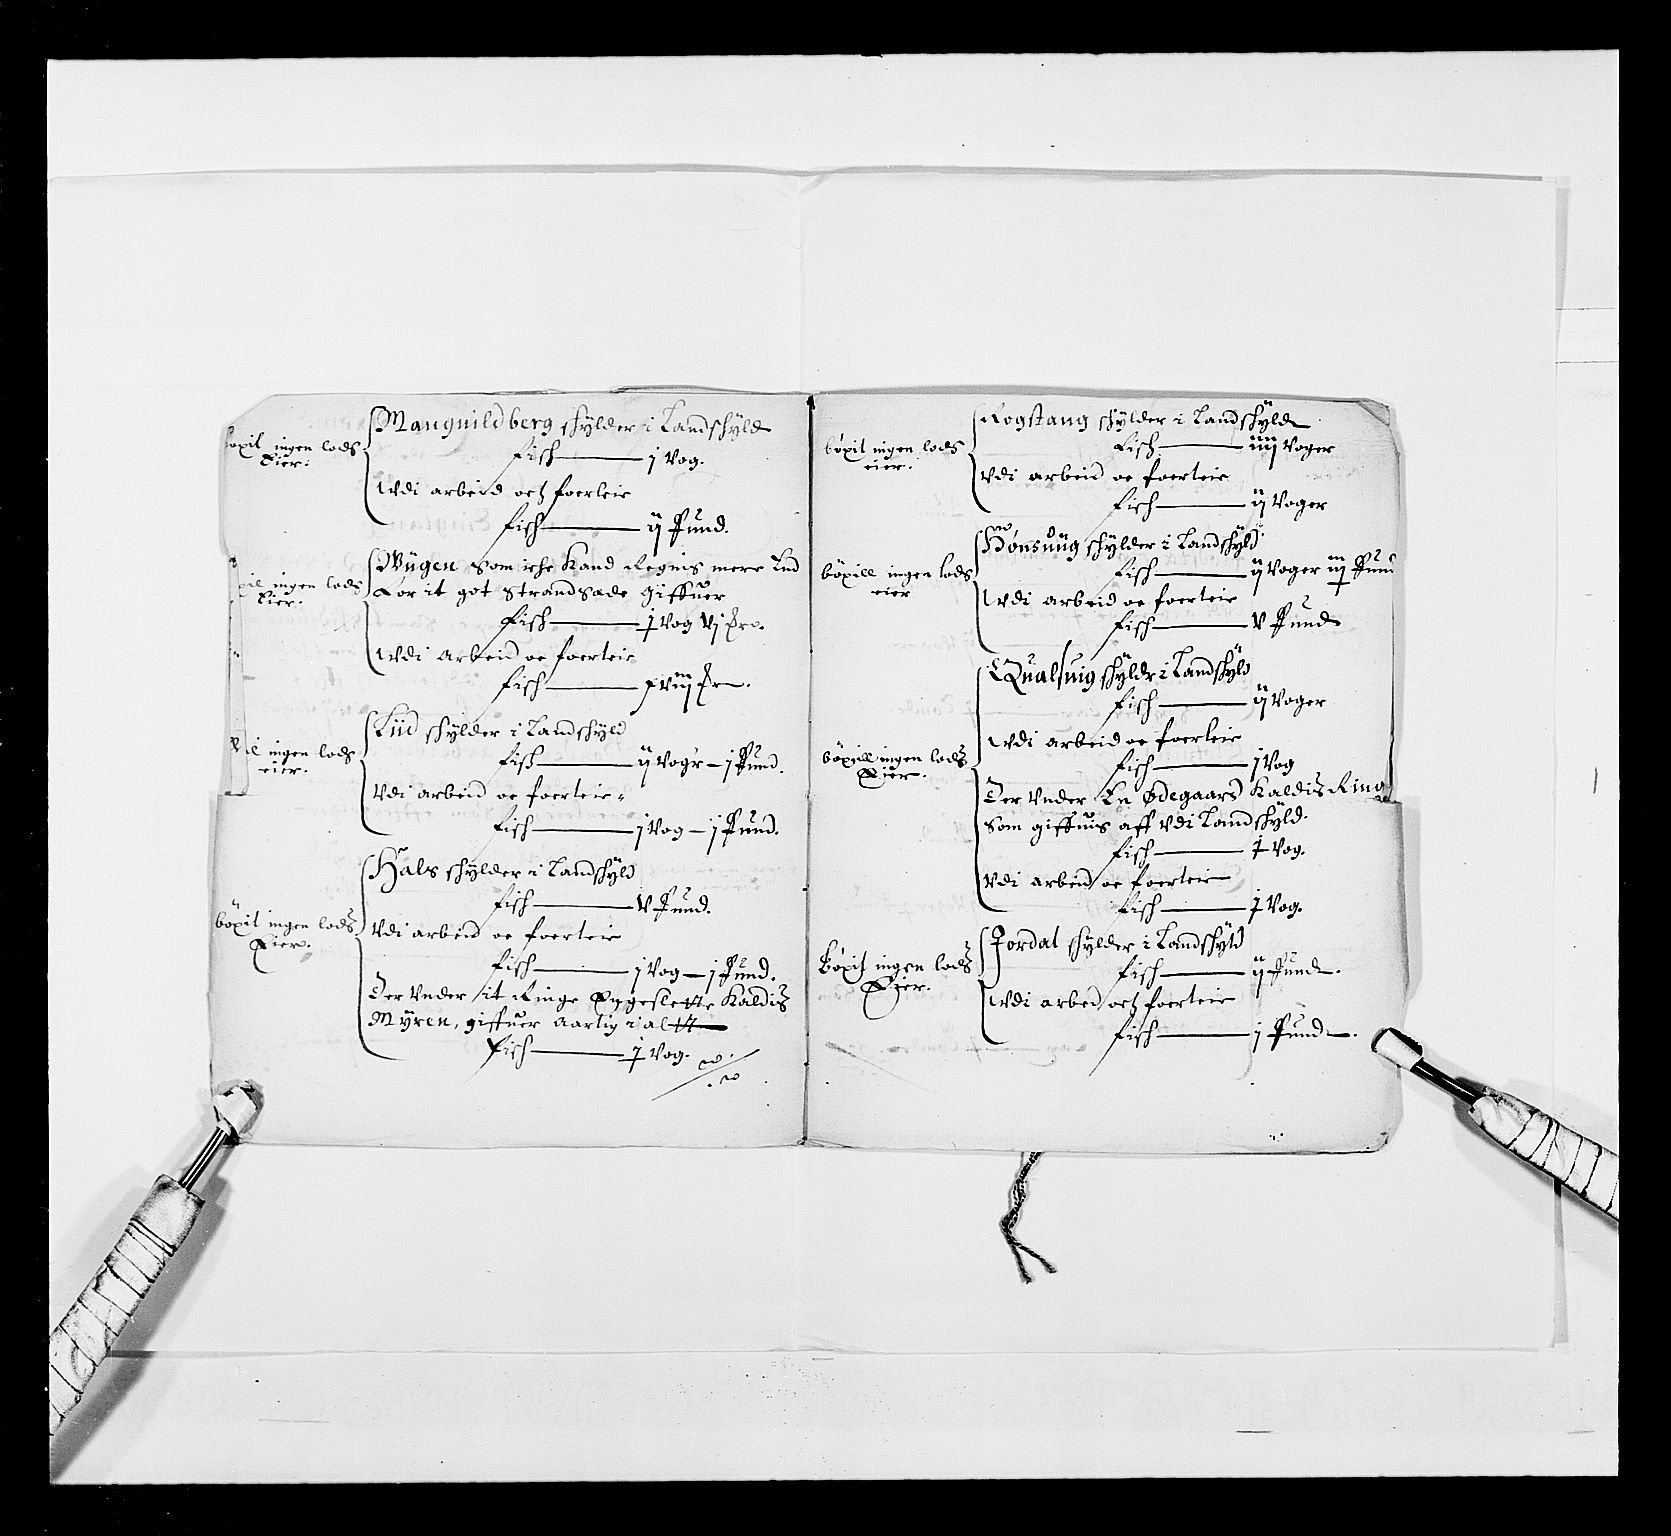 böxit ingen lods
Eier.
Manguildberg schÿlder i Landschÿld
fisch — j Vog.
Vdi arbeid och foerleie
fisch — ij Pund.
ingen lods
Eier.
Wügen som iche Kand Regnis mere End
For it got strandsæde Giffuer
fisch — j Vog Vj
Vdi arbeid oc foerleie
fisch
ingen lods
eier.
Liid schÿlder i Landschÿld
fisch — ij Vogr — j Pund.
Vdi arbeid oc foerleie
fisch — j Vog — j Pund.
böxit ingen lods
Eier.
Hals schÿlder i Landschÿld
fisch — V Pund.
Vdi arbeid oc foerleie
fisch — j Vog — j Pund.
Der Vnder it Ringe Kaldis
Mÿren, giffuer Aarlig i alt
fisch — j Vog.
böxit ingen lods
eier.
Rogstang schÿlder i Landschÿld
fisch — iiij Voger
Vdi arbeid oc foerleie
fisch — ij Voger
böxill ingen lods
eier
Hönsüüg schÿlder i Landschÿld
fisch — ij Voger iij Pund
Vdi arbeid oc foerleie
fisch — V Pund
böxill ingen lods
Eier.
Qualsuig schÿldr i Landschÿld
fisch — ij Voger
Vdi arbeid oc foerleie
fisch — j Vog
Der Vnder En Ødegaard Kaldis Ring
som giffuis aff Vdi Landschÿld.
fisch — j Vog.
Vdi arbeid oc foerleie
fisch — j Vog.
Böxit ingen lods
Eier.
Jordal schÿlder i Landschÿld
fisch — ij Pund.
Vdi arbeid och foerleie
fisch — j Pund.